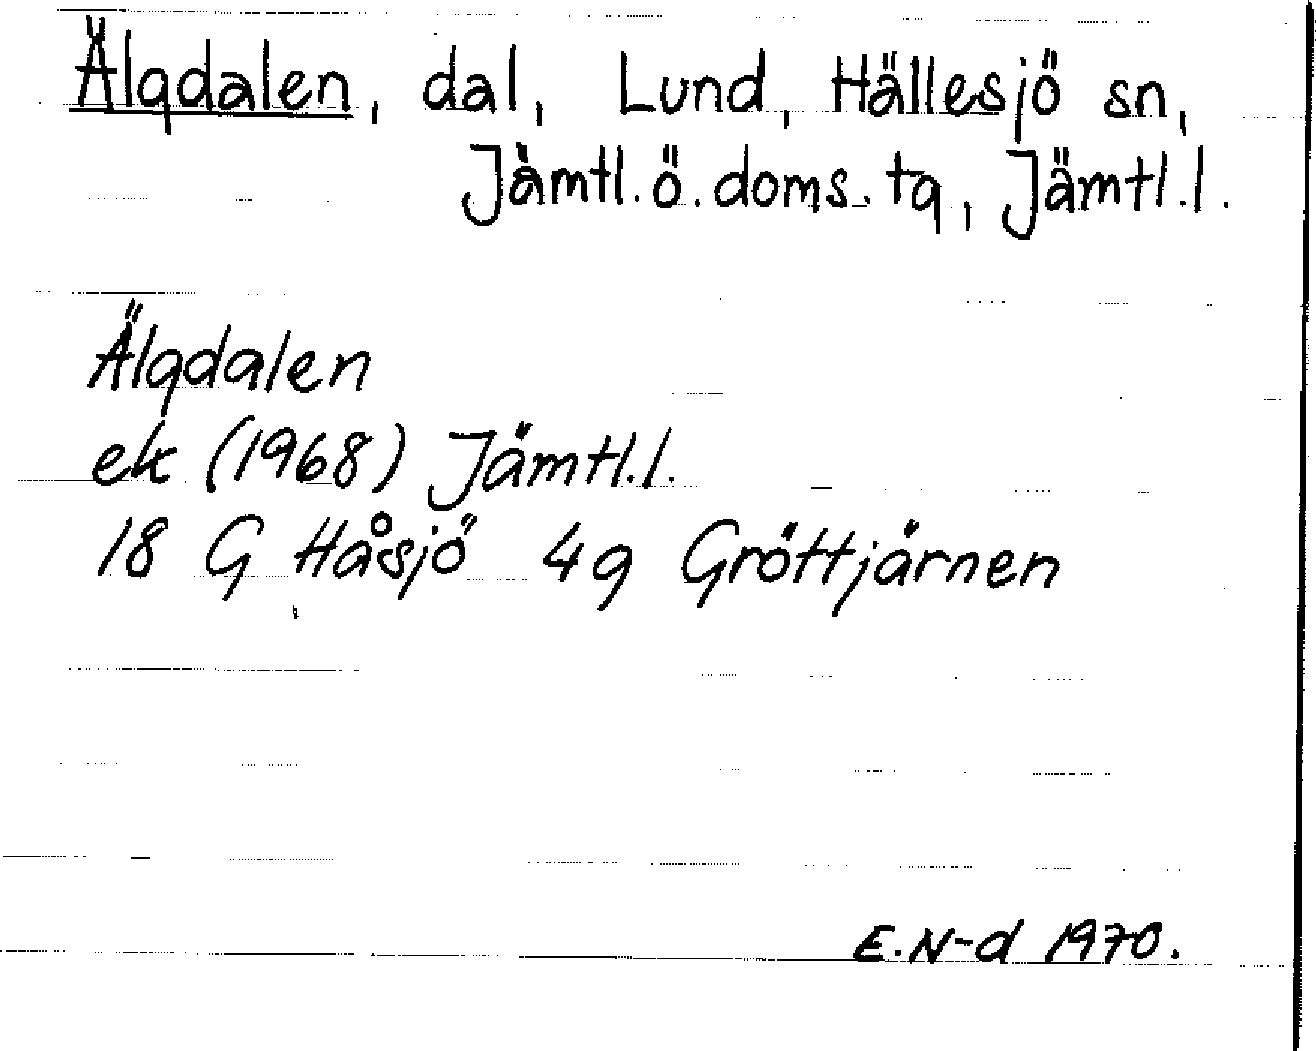 Älgdalen, dal, Lund, Hällesjö sn,
Jämtl. ö. doms. tg, Jämtl. l.
Älgdalen
ek (1968) Jämtl. l.
18 G Håsjö 4g Gröttjärnen
E. N-d 1970.